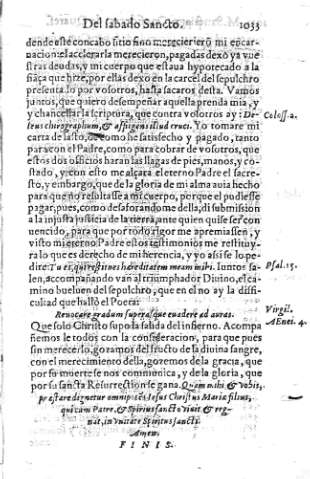 Del sabado Sancto. 1033
dende este concabo sitio sino mereciere mi encar-
nacion: el accelerarla merecieron, pagadas dexo ya vue
stras deudas, y mi cuerpo que estaua hypotecado a la
fiãça que hize, por ellas dexo en la carcel del sepulchro
presentado por vosotros, hasta sacaros desta. Vamos
juntos, que quiero desempeñar aquella prenda mia, y
y chancellar la scriptura, que contra vosotros ay: De-
lens chirographum, & affigens illud cruci. Yo tomare mi Coloss. 2.
carta de lasto, de como he satisfecho y pagado, tanto
para con el Padre, como para cobrar de vosotros, que
estos dos officios haran las llagas de pies, manos, y co-
stado, y con esto me alçara el eterno Padre el secre-
sto, y embargo, que de la gloria de mi alma auia hecho
para que no resultasse a mi cuerpo, porque el pudiesse
pagar, pues, como desaforandome della, di submission
a la injusta justicia de la tierra, ante quien quise ser con
uencido, para que por todo rigor me apremiassen, y
visto mi eterno Padre estos testimonios me restituy-
ra lo que es derecho de mi herencia, y yo assi se lo pe-
dire: Tu es, qui restitues hæreditatem meam mihi. Iuntos sa- Psal. 15.
len, acompañando van al triumphador Diuino, el ca-
mino bueluen del sepulchro, que en el no ay la diffi-
cultad que hallò el Poeta:
Reuocare gradum superasque euadere ad auras. Virgil.
Que solo Christo supo la salida del infierno. Acompa Æneid. 4.
ñemosle todos con la consideracion, para que pues
sin merecerlo, gozamos del fructo de la diuina sangre,
con el merecimiento della, gozemos de la gracia, que
por su muerte se nos communica, y de la gloria, que
por su sancta Resurrection se gana. Quam mihi & vobis,
præstare dignetur omnipotẽs Iesus Christus Mariæ filius,
qui cum Patre, & Spiritu sancto viuit & reg-
nat, in vnitate Spiritus sancti.
Amen.
FINIS.